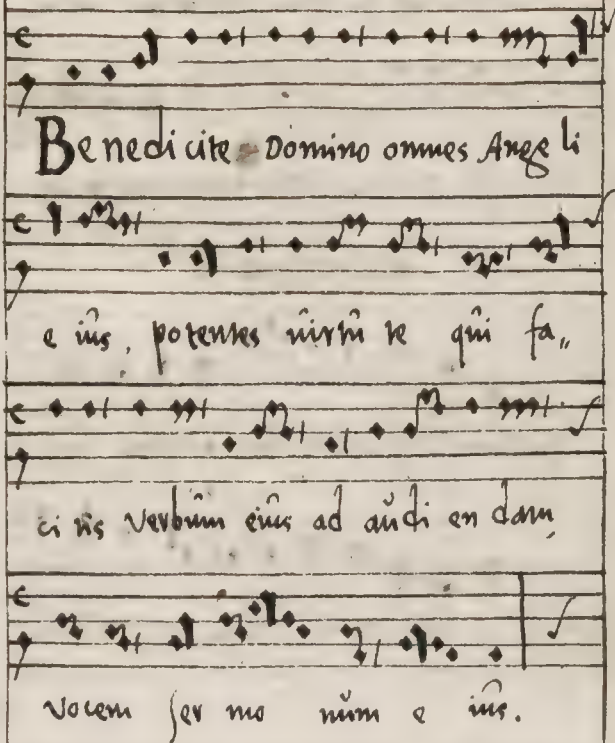 Benedicite Domino omnes Angeli
e ius, potentes virtu te qui fa„
ci tis verbum eius ad audi en dam
vocem ser mo num e ius.